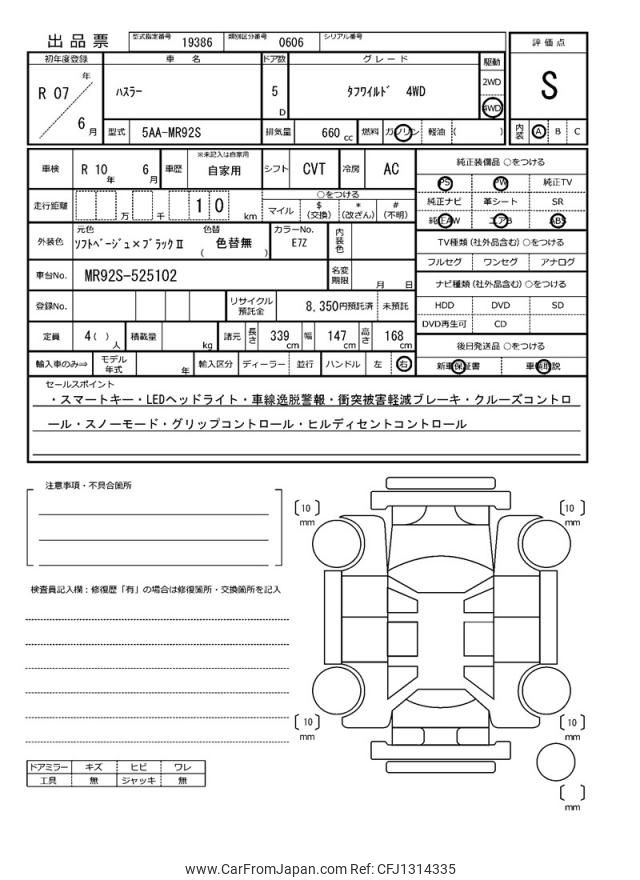 出品票 型式指定番号 19386 類別区分番号 0606 シリアル番号
評価点
S
内装 A B C
初年度登録 車名 ドア数 グレード 駆動
R 07 年 6 月 ハスラー 5 D タフワイルド 4WD 2WD 4WD
型式 5AA-MR92S 排気量 660 cc 燃料 ガソリン 軽油 ( )
車検 R 10 年 6 月 車歴 ※未記入は自家用 自家用 シフト CVT 冷房 AC
走行距離 万 千 1 0 km ○をつける
マイル $ (交換) * (改ざん) # (不明)
外装色 元色 ソフトベージュ×ブラックⅡ 色替 色替無 ( ) カラーNo. E7Z 内装色
車台No. MR92S-525102 名変期限 月 日
登録No. リサイクル預託金 8,350円預託済 未預託
定員 4( ) 人 積載量 kg 諸元 長さ 339 cm 幅 147 cm 高さ 168 cm
輸入車のみ⇒ モデル年式 年 輸入区分 ディーラー 並行 ハンドル 左 右
純正装備品 ○をつける
PS PW 純正TV
純正ナビ 革シート SR
純正AW エアB ABS
TV種類(社外品含む)○をつける
フルセグ ワンセグ アナログ
ナビ種類(社外品含む)○をつける
HDD DVD SD
DVD再生可 CD
後日発送品 ○をつける
新車保証書 車輌取説
セールスポイント
・スマートキー・LEDヘッドライト・車線逸脱警報・衝突被害軽減ブレーキ・クルーズコントロ
ール・スノーモード・グリップコントロール・ヒルディセントコントロール
注意事項・不具合箇所
検査員記入欄:修復歴「有」の場合は修復箇所・交換箇所を記入
ドアミラー キズ ヒビ ワレ
工具 無 ジャッキ 無
[10] mm
[10] mm
[10] mm
[10] mm
[ ] mm
www.CarFromJapan.com Ref: CFJ1314335